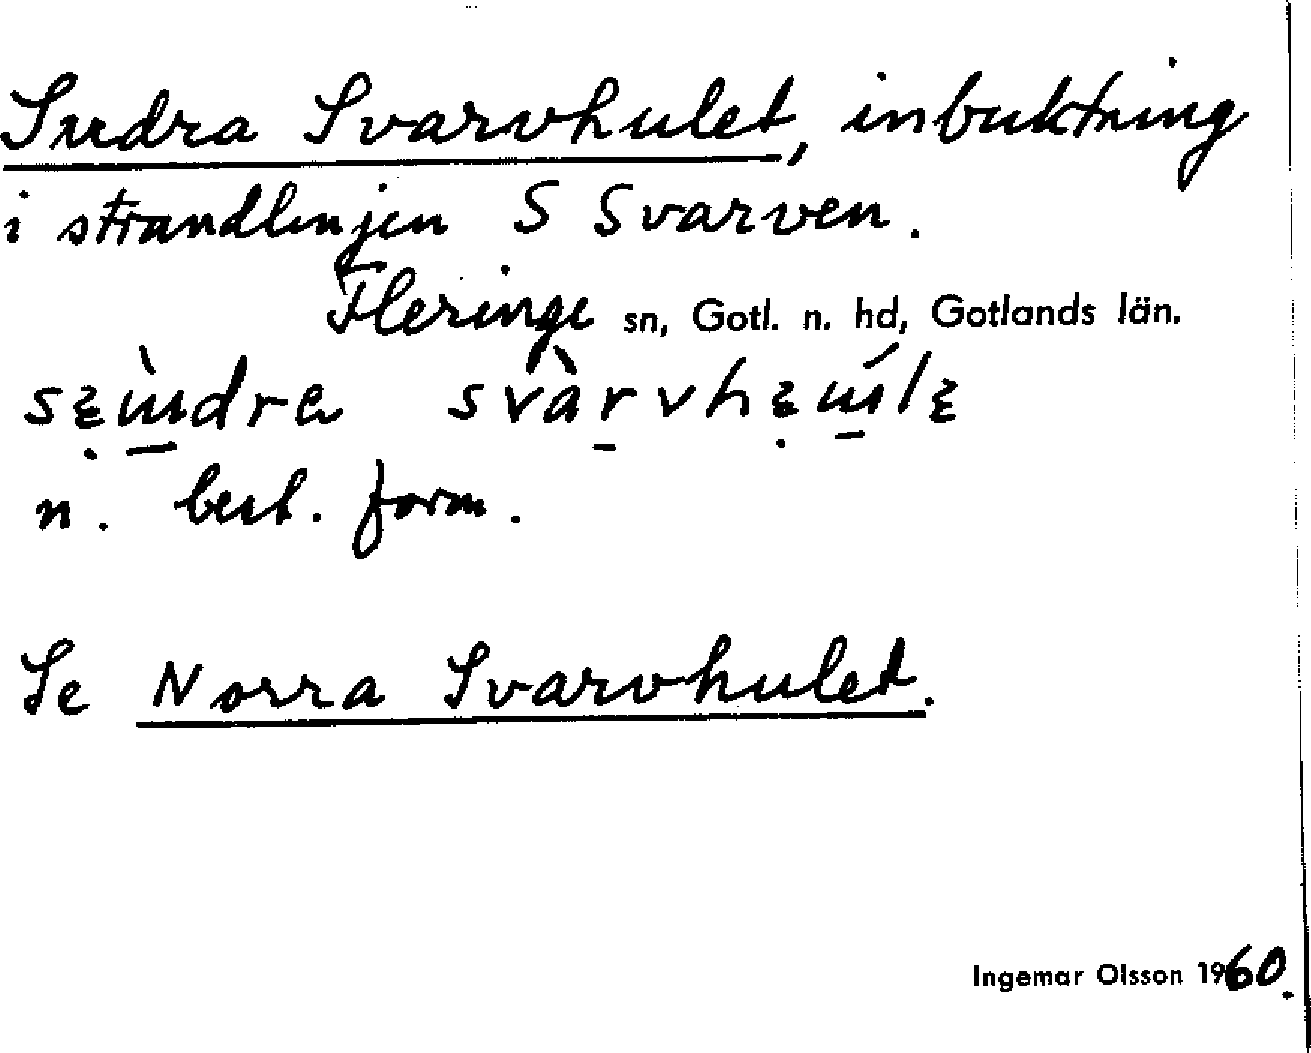 Sudra Svarvhulet, inbuktning
i strandlinjen S Svarven.
Fleringe sn, Gotl. n. hd, Gotlands län.
n. best. form.
Se Norra Svarvhulet.
Ingemar Olsson 1960.